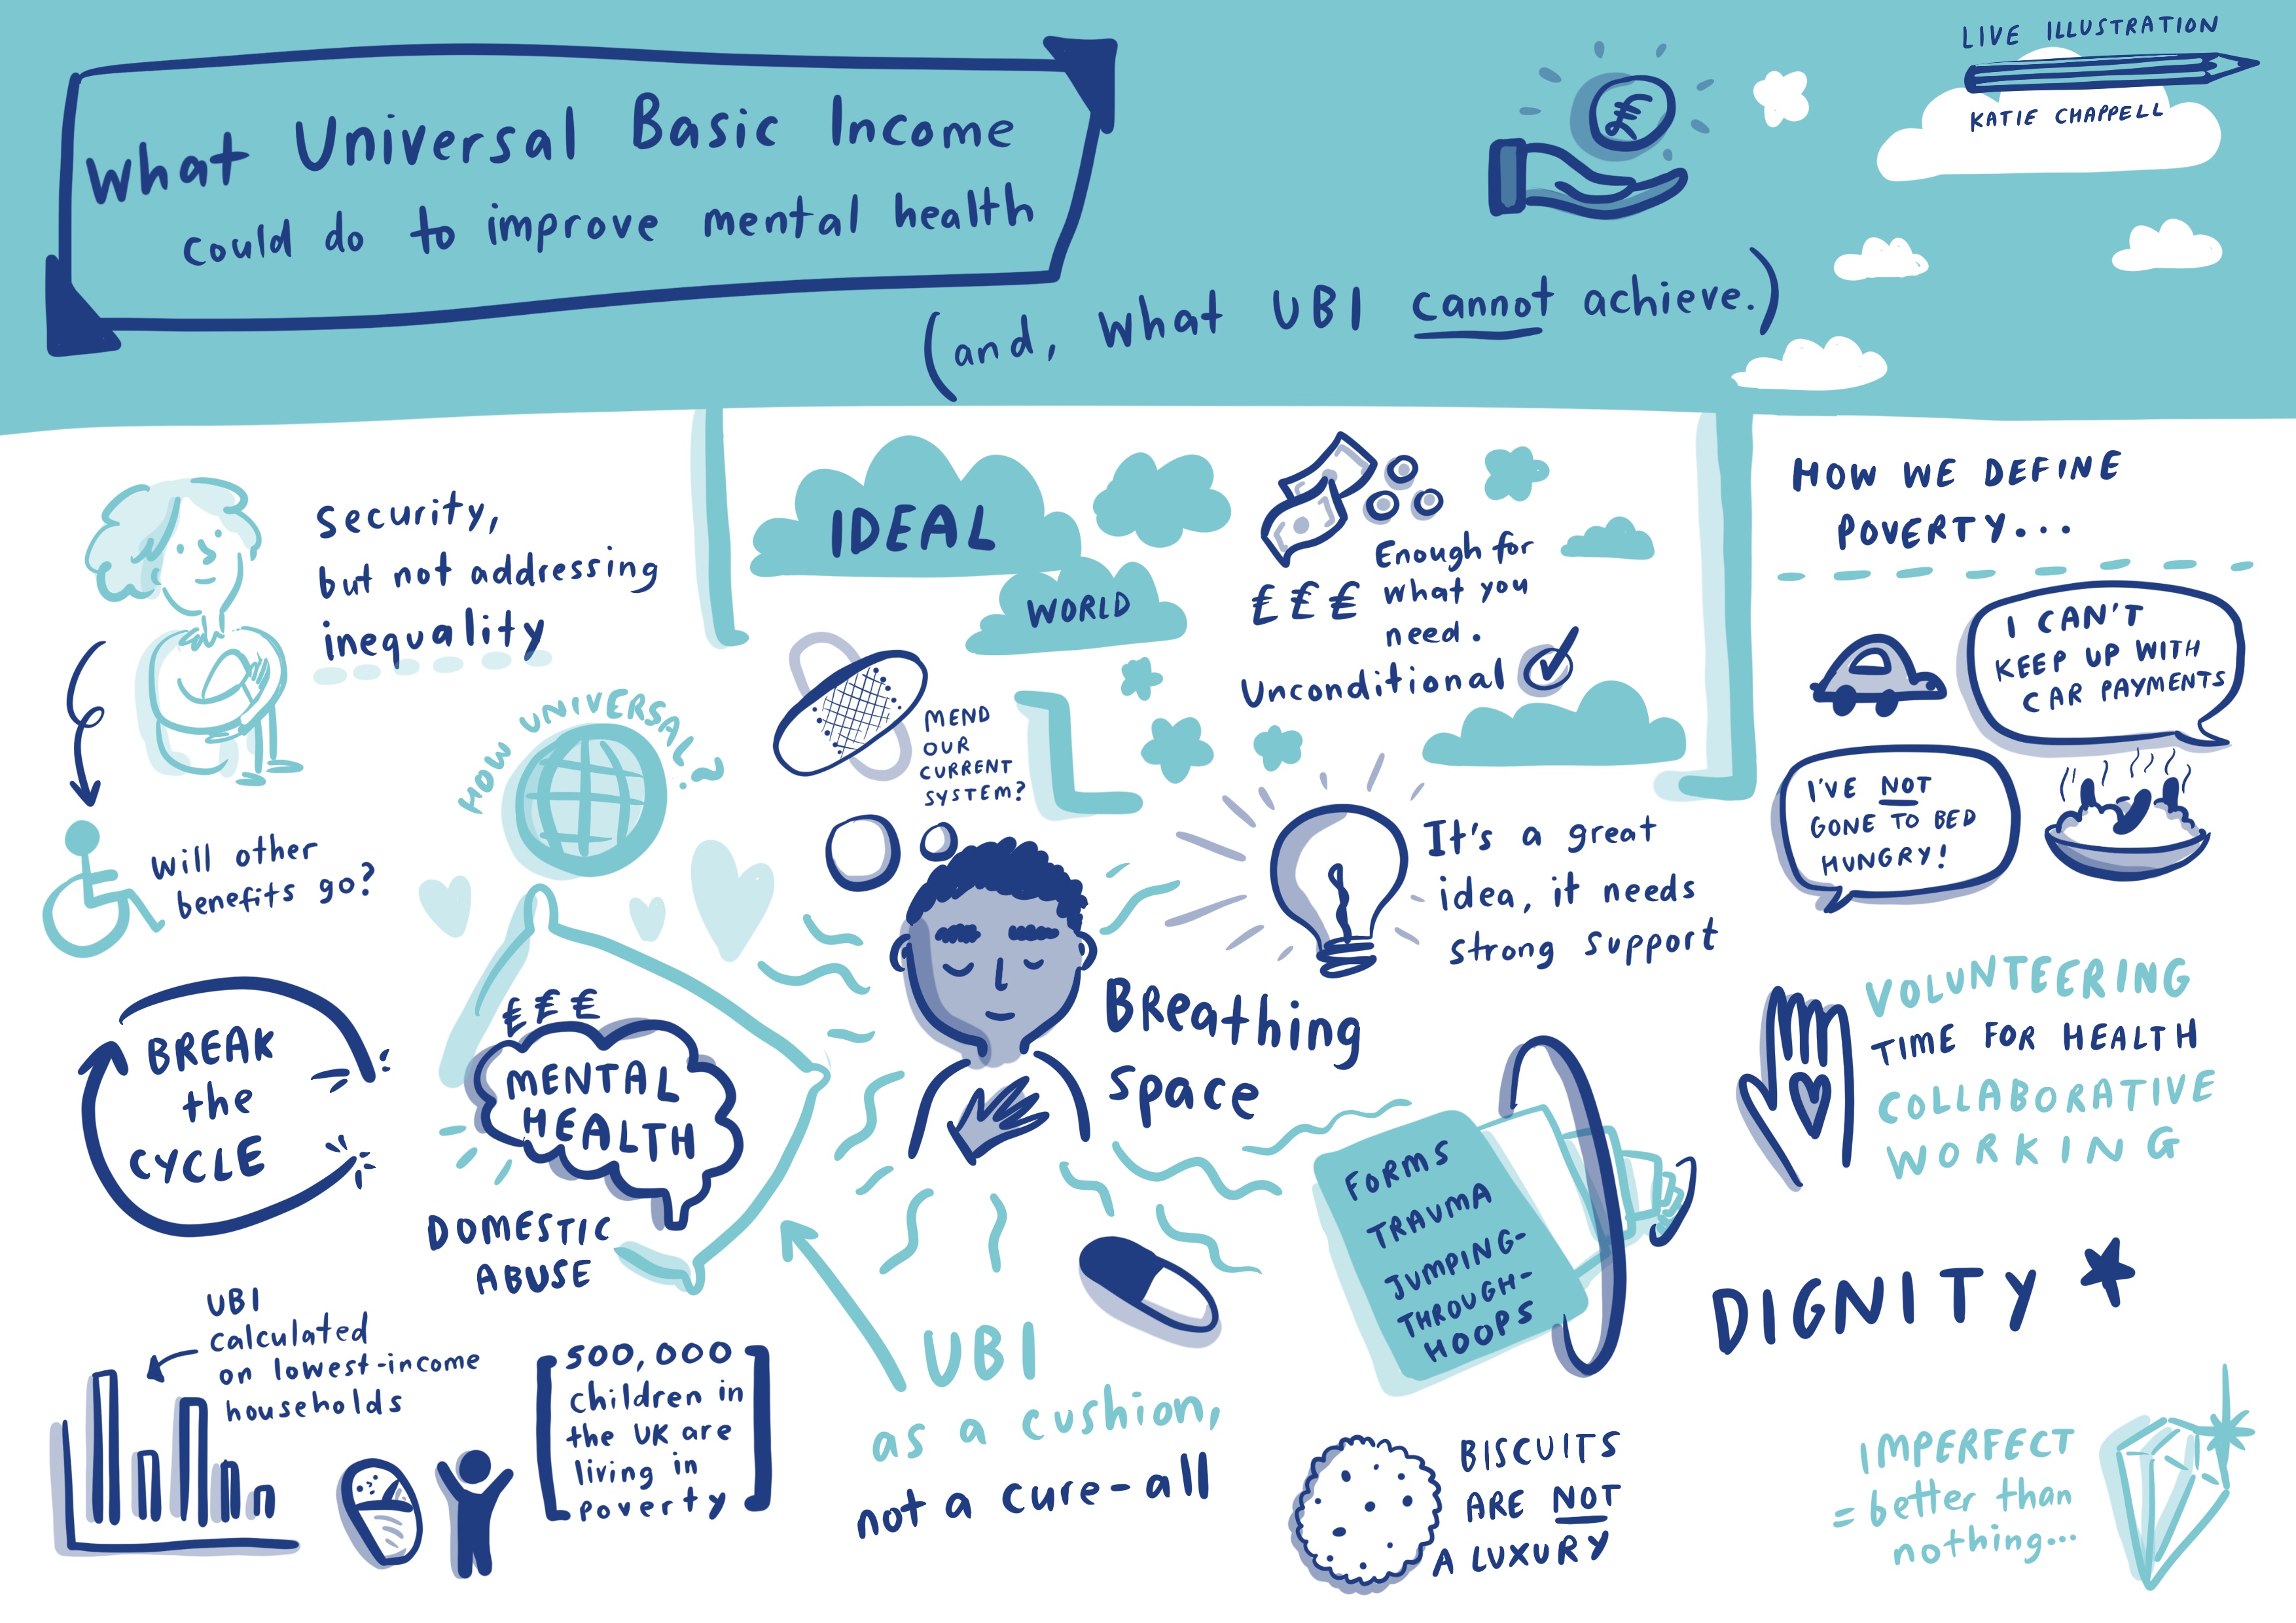 What Universal Basic Income
could do to improve mental health
(and, what UBI cannot achieve.)
£
LIVE ILLUSTRATION
KATIE CHAPPELL
Security,
but not addressing
inequality
will other
benefits go?
HOW UNIVERSAL?
IDEAL
WORLD
MEND
OUR
CURRENT
SYSTEM?
£££
Enough for
what you
need.
Unconditional
It's a great
idea, it needs
strong support
HOW WE DEFINE
POVERTY...
I CAN'T
KEEP UP WITH
CAR PAYMENTS
I'VE NOT
GONE TO BED
HUNGRY!
BREAK
the
CYCLE
£££
MENTAL
HEALTH
DOMESTIC
ABUSE
BReathing
space
VOLUNTEERING
TIME FOR HEALTH
COLLABORATIVE
WORKING
FORMS
TRAUMA
JUMPING-
THROUGH-
HOOPS
DIGNITY
UBI
calculated
on lowest-income
households
500,000
children in
the UK are
living in
poverty
UBI
as a cushion,
not a cure-all
BISCUITS
ARE NOT
A LUXURY
IMPERFECT
= better than
nothing...